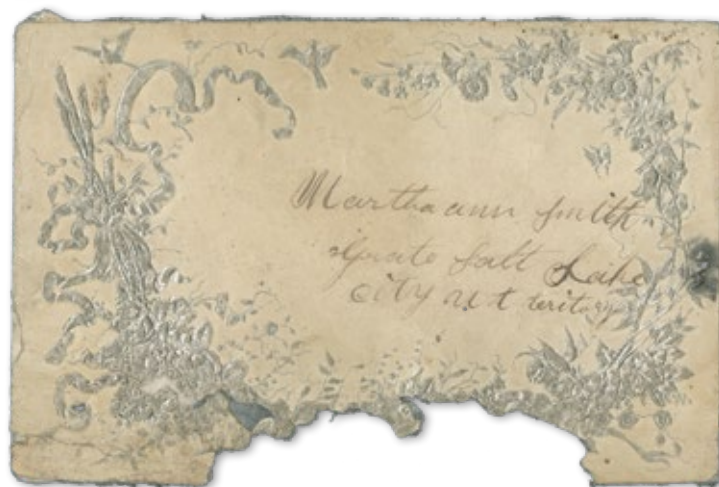 Martha ann Smith
Salt Lake
City ut teritory